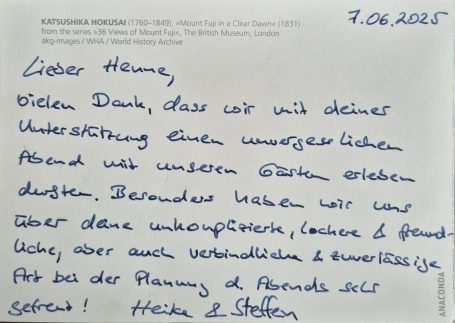 KATSUSHIKA HOKUSAI (1760–1849), »Mount Fuji in a Clear Dawn« (1831)
from the series »36 Views of Mount Fuji«, The British Museum, London
akg-images / WHA / World History Archive
7.06.2025
Lieber Henne,
vielen Dank, dass wir mit deiner
Unterstützung einen unvergesslichen
Abend mit unseren Gästen erleben
durften. Besonders haben wir uns
über deine unkomplizierte, lockere & freund-
liche, aber auch verbindliche & zuverlässige
Art bei der Planung d. Abends sehr
gefreut! Heike & Steffen
ANACONDA